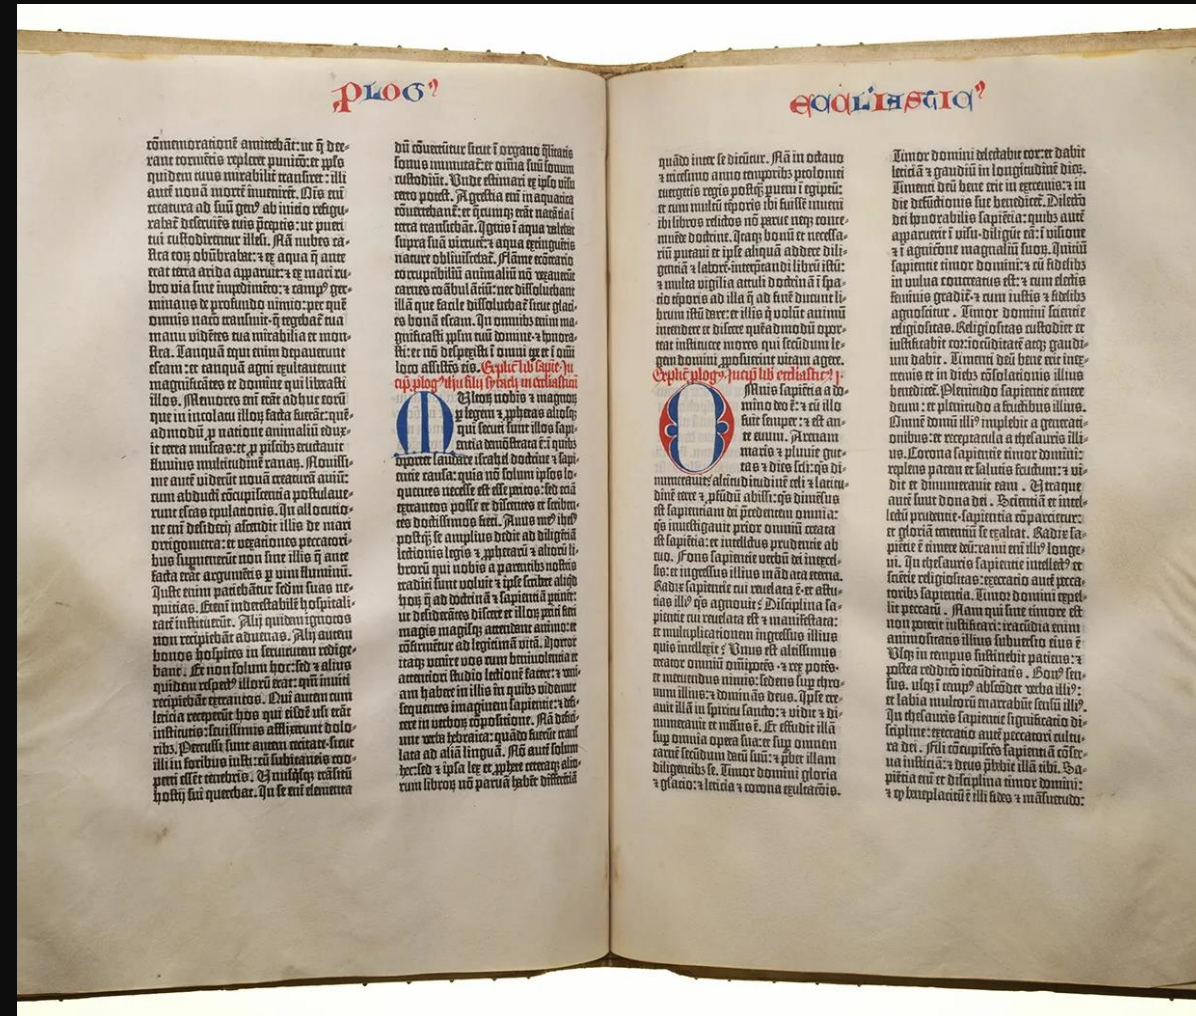 ꝓLOGꝰ
cõmemorationẽ amittebãt: ut q̃ dee-
rant tormẽtis repleret punicõ: et ppłs
quidem tuus mirabilit̃ transiret: illi
autẽ nouã mortẽ inuenirẽt. Oĩs enĩ
creatura ad suũ genꝰ ab inicio refigu-
rabat̃ deseruiẽs tuis p̃ceptis: ut pueri
tui custodirentur illesi. Nã nubes ca-
stra eoꝝ obũbrabat: ⁊ ex aqua q̃ ante
erat terra arida apparuit: ⁊ ex mari ru-
bro via sine impedimẽto: ⁊ campꝰ ger-
minans de profundo nimio: per quẽ
omnis nacõ transiuit· q̃ tegebat̃ tua
manu vidẽtes tua mirabilia et mon-
stra. Tanquã equi enim depauerunt
escam: et tanquã agni exultauerunt
magnificãtes te domine qui liberasti
illos. Memores enĩ erãt adhuc eorũ
que in incolatu illoꝝ facta fuerãt: quẽ-
admodũ ꝓ natione animaliũ edux-
it terra muscas: et ꝓ piscibꝫ eructauit
fluuius multitudinẽ ranaꝝ. Nouissi-
me autẽ viderũt nouã creaturã auiũ:
cum abducti cõcupiscentia postulaue-
runt escas epulationis. In allocutio-
ne enĩ desiderij ascendit illis de mari
ortigometra: et vexationes peccatori-
bus supuenerũt non sine illis q̃ ante
facta erãt argumẽtis ꝑ vim fluminũ.
Iuste enim paciebãtur scd̃m suas ne-
quitias. Etenĩ indetestabilẽ hospitali-
tatẽ instituerũt. Alij quidem ignotos
non recipiebãt aduenas. Alij autem
bonos hospites in seruitutem redige-
bant. Et non solum hoc: sed ⁊ alius
quidem respectꝰ illorũ erat: qm̃ inuiti
recipiebãt extraneos. Qui autem cum
leticia receperũt hos qui eisdẽ usi erãt
insticutis: seuissimis afflixerunt dolo-
ribꝫ. Percussi sunt autem cecitate: sicut
illi in foribus iusti: cũ subitaneis coo-
perti essẽt tenebris. Unusq̃sqꝫ trãsitũ
hostij sui querebat. In se enĩ elementa
dũ cõuertũtur sicut ĩ organo q̃litatis
sonus immutat̃: et om̃ia suũ sonum
custodiũt. Unde estimari ex ipso visu
certo potest. Agrestia enĩ in aquatica
cõuertebant̃: et q̃cumqꝫ erãt natãtia ĩ
terra transiebãt. Ignis ĩ aqua valebat
supra suã virtutẽ: ⁊ aqua extinguẽtis
nature obliuiscebat̃. Flãme econtrario
corruptibiliũ animaliũ nõ vexauerũt
carnes coãbulãtiũ: nec dissoluebant
illã que facile dissoluebat̃ sicut glaci-
es bonã escam. In omnibꝫ enim ma-
gnificasti pp̃lm tuũ domine· ⁊ honora-
sti: et nõ despexisti ĩ omni tp̃e et ĩ om̃i
loco assistẽs eis. Explic̃ lib̃ sapie. In-
cip̃ ꝓlogꝰ ihũ filij syrach in ecclĩasticũ
MUltoꝝ nobis ⁊ magnoꝝ
ꝑ legem ⁊ ꝓphetas aliosqꝫ
qui secuti sunt illos sapi-
entia demõstrata ẽ: ĩ quibꝫ
oportet laudare israhel doctrine ⁊ sapi-
entie causa: quia nõ solum ipsos lo-
quentes necesse est esse peritos: sed etiã
extraneos posse et discentes et scriben-
tes doctissimos fieri. Auus meꝰ ihesꝰ
postq̃ȝ se amplius dedit ad diligẽtiã
lectionis legis ⁊ ꝓphetarũ ⁊ aliorũ li-
brorũ qui nobis a parentibꝫ nostris
traditi sunt: voluit ⁊ ipse scribere aliqd̃
horũ q̃ ad doctrinã ⁊ sapientiã ptinẽt:
ut desiderãtes discere et illoꝝ periti facti
magis magisqꝫ attendant animo: et
cõfirmẽtur ad legitimã vitã. Hortor
itaqꝫ venire vos cum beniuolentia et
attentiori studio lectionẽ facere: ⁊ veni-
am habere in illis in quibꝫ videmur
sequentes imaginem sapientie: ⁊ defi-
cere in verboꝝ cõpositione. Nã defici-
unt verba hebraica: quãdo fuerĩt trans-
lata ad aliã linguã. Nõ autẽ solum
hec: sed ⁊ ipsa lex et ꝓphete ceteraqꝫ alio-
rum libroꝝ nõ paruã habẽt differẽtiã
ECCLĨASTICꝰ
quãdo inter se dicũtur. Nã in octauo
⁊ tricesimo anno temporibꝫ ptolomei
euergetis regis postq̃ȝ pueni ĩ egiptũ:
et cum multũ tẽporis ibi fuissẽ inueni
ibi libros relictos nõ parue neqꝫ conte-
mnẽde doctrine. Itaqꝫ bonũ et necessa-
riũ putaui et ipse aliquã addere dili-
gentiã ⁊ laborẽ· interp̃tandi librũ istũ:
⁊ multa vigilia attuli doctrinã ĩ spa-
cio tẽporis ad illa q̃ ad finẽ ducunt li-
brum istũ dare: et illis q̃ volũt animũ
intendere et discere quẽadmodũ opor-
teat instituere mores qui secũdum le-
gem domini ꝓposuerint vitam agere.
Explic̃ ꝓlogꝰ. Incip̃ lib̃ ecclĩasticꝰ I.
OMnis sapiẽtia a do-
mino deo ẽ: ⁊ cũ illo
fuit semper: ⁊ est an-
te euum. Arenam
maris ⁊ pluuie gut-
tas ⁊ dies scłi: q̃s di-
numerauit? altitudinẽ celi ⁊ latitu-
dinẽ terre ⁊ ꝓfũdũ abissi: q̃s dimẽsus
est sapientiam dei p̃cedentem omnia:
q̃s inuestigauit prior omniũ creata
est sapiẽtia: et intellectus prudentie ab
euo. Fons sapientie verbũ dei in excel-
sis: et ingressus illius mãdata eterna.
Radix sapientie cui reuelata ẽ· et astu-
tias illiꝰ q̃s agnouit? Disciplina sa-
pientie cui reuelata est ⁊ manifestata:
et multiplicationem ingressus illius
quis intellexit? Unus est altissimus
creator omniũ om̃ipotẽs· ⁊ rex potẽs·
et metuendus nimis: sedens sup thro-
num illius: ⁊ dominãs deus. Ipse cre-
auit illã in spiritu sancto: ⁊ vidit ⁊ di-
numerauit et mẽsus ẽ. Et effudit illã
sup omnia opera sua: et sup omnem
carnẽ secũdum datũ suũ: ⁊ p̃bet illam
diligentibꝫ se. Timor domini gloria
⁊ gl̃acio: ⁊ leticia ⁊ corona exultacõis.
Timor domini delectabit cor: et dabit
leticiã ⁊ gaudiũ in longitudinẽ dieꝝ.
Timenti deũ bene erit in extremis: ⁊ in
die defunctionis sue benedicet̃. Dilectio
dei honorabilis sapiẽtia: quibꝫ autẽ
apparuerit ĩ visu· diligũt eã: ĩ visione
⁊ ĩ agnicõne magnaliũ suoꝝ. Iniciũ
sapientie timor domini: ⁊ cũ fidelibꝫ
in vulua concreatus est: ⁊ cum electis
feminis gradit̃· ⁊ cum iustis ⁊ fidelibꝫ
agnoscitur. Timor domini scientie
religiositas. Religiositas custodiet et
iustificabit cor: iocũditatẽ atqꝫ gaudi-
um dabit. Timenti deũ bene erit· in ex-
tremis et in diebꝫ cõsolationis illius
benedicet̃. Plenitudo sapientie timere
deum: et plenitudo a fructibus illius.
Omnẽ domũ illiꝰ implebit a generati-
onibus: et receptacula a thesauris illi-
us. Corona sapientie timor domini:
replens pacem et salutis fructum: ⁊ vi-
dit et dinumerauit eam. Utraque
autẽ sunt dona dei. Scientiã et intel-
lectũ prudentie· sapientia cõpartietur:
et gloriã tenentiũ se exaltat. Radix sa-
piẽtie ẽ timere deũ: rami enĩ illiꝰ longe-
ui. In thesauris sapientie intellectꝰ et
sciẽtie religiositas: execratio autẽ pecca-
toribꝫ sapientia. Timor domini expel-
lit peccatũ. Nam qui sine timore est
non poterit iustificari: iracũdia enim
animositatis illius subuersio eius ẽ.
Usqꝫ in tempus sustinebit paciens: ⁊
postea redditõ iocũditatis. Bonꝰ sen-
sus· usqꝫ ĩ tempꝰ abscõdet verba illiꝰ:
et labia multorũ enarrabũt sensũ illiꝰ.
In thesauris sapientie significatio di-
scipline: execratio autẽ peccatori cultu-
ra dei. Fili cõcupiscẽs sapientiã cõser-
ua iusticiã: ⁊ deus p̃bebit illã tibi. Sa-
piẽtia enĩ et disciplina timor domini:
⁊ qd̃ beneplacitũ ẽ illi fides ⁊ mãsuetudo: